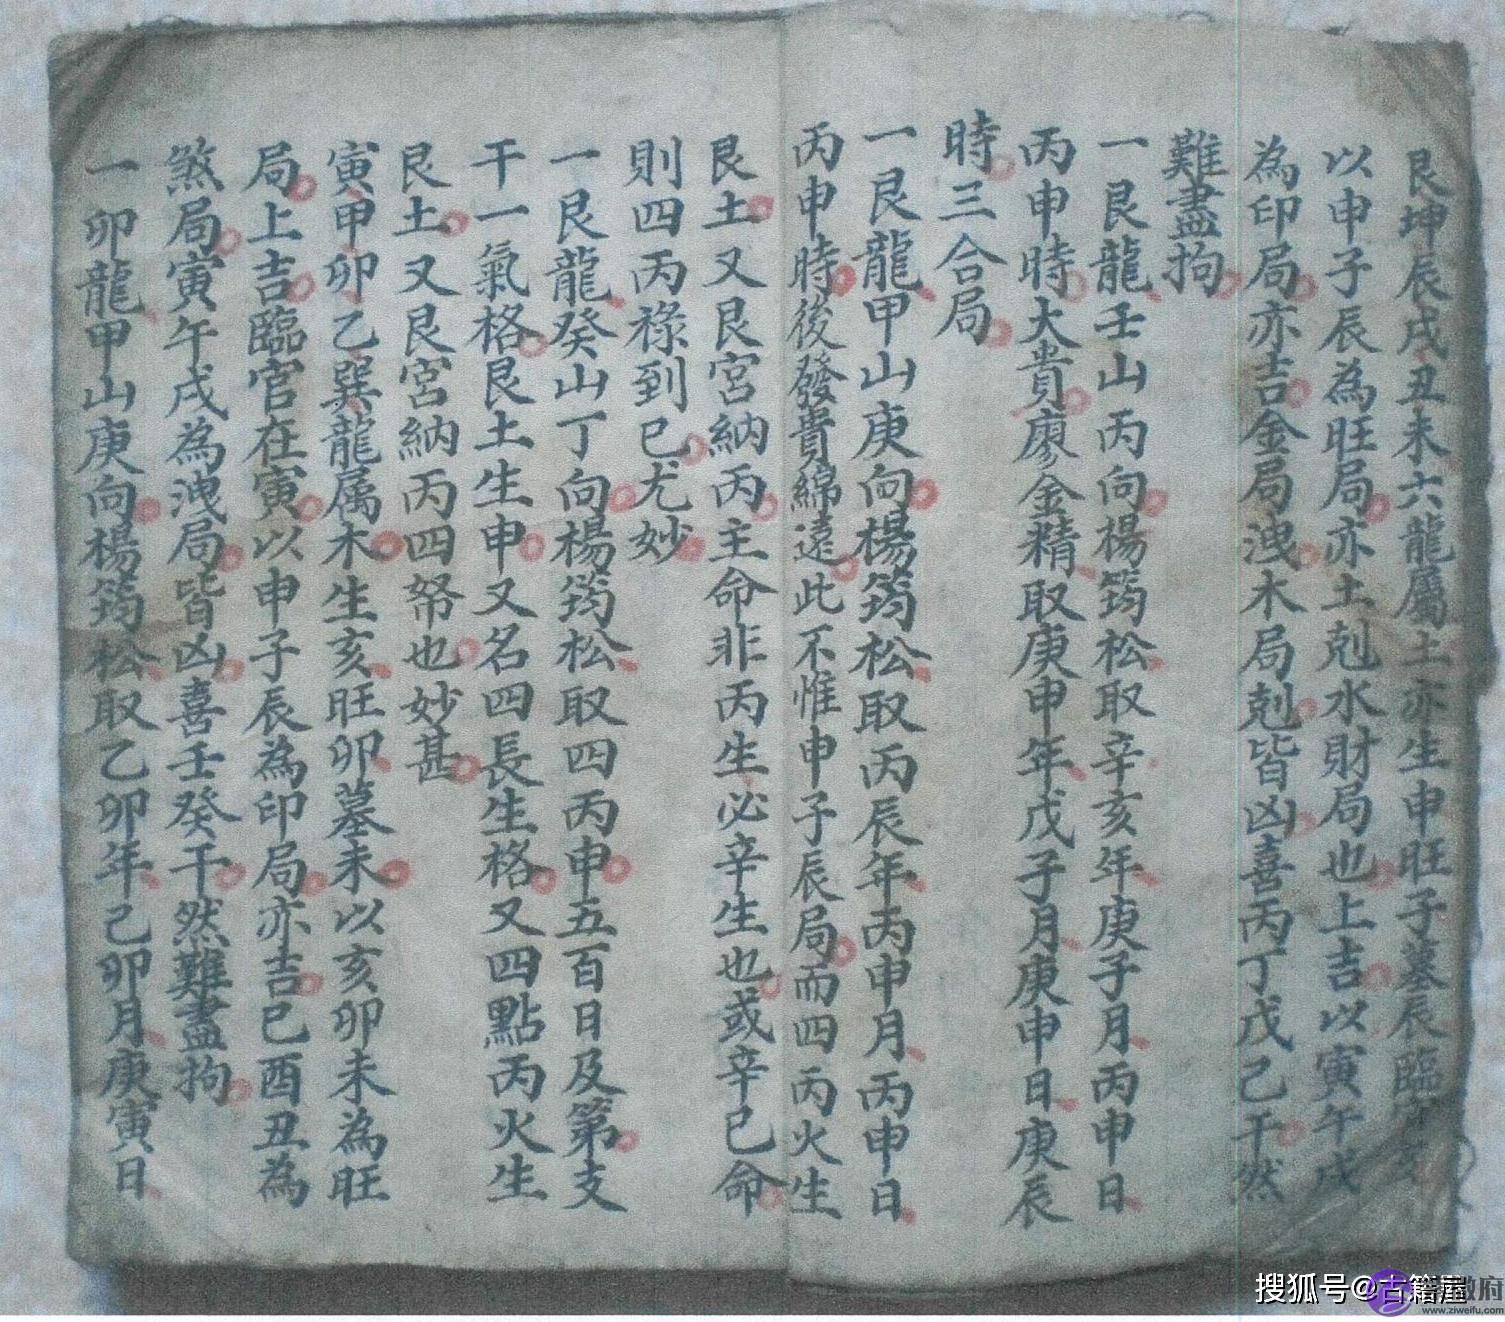 艮坤辰戌丑未六龍屬土亦生申旺子墓辰臨官
以申子辰為旺局亦土剋水財局也上吉以寅午戌
為印局亦吉金局洩木局剋皆凶喜丙丁戊己干然
難盡拘
一艮龍壬山丙向楊筠松取辛亥年庚子月丙申日
丙申時大貴廖金精取庚申年戊子月庚申日庚辰
時三合局
一艮龍甲山庚向楊筠松取丙辰年丙申月丙申日
丙申時後發貴綿遠此不惟申子辰局而四丙火生
艮土又艮宮納丙主命非丙生必辛生也或辛巳命
則四丙祿到巳尤妙
一艮龍癸山丁向楊筠松取四丙申五百日及第支
干一氣格艮土生申又名四長生格又四點丙火生
艮土又艮宮納丙四帑也妙甚
寅甲卯乙巽龍属木生亥旺卯墓未以亥卯未為旺
局上吉臨官在寅以申子辰為印局亦吉巳酉丑為
煞局寅午戌為洩局皆凶喜壬癸干然難盡拘
一卯龍甲山庚向楊筠松取乙卯年己卯月庚寅日
搜狐号@古籍屋
www.ziweifu.com